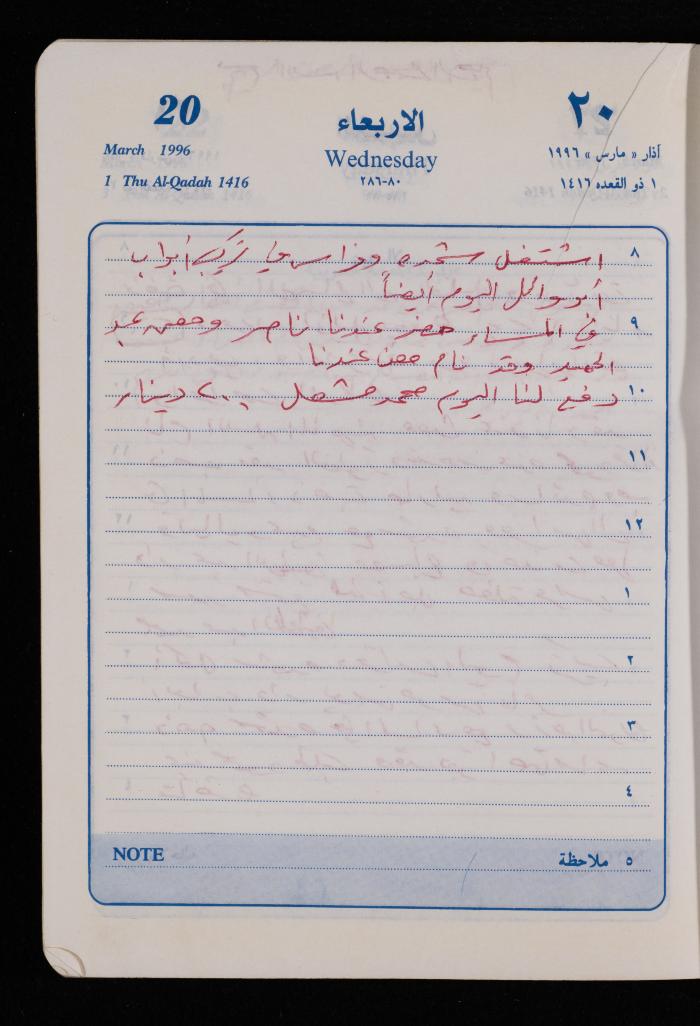 20
٢٠
الاربعاء
March 1996
Wednesday
آذار « مارس » ١٩٩٦
1 Thu Al-Qadah 1416
٢٨٦-٨٠
١ ذو القعده ١٤١٦
٨ اشتغل شحده وفراس في تركيب أبواب
أبو وائل اليوم أيضاً
٩ في المساء حضر عندنا ناصر ومعن عبد
الحميد وقد نام معن عندنا
١٠ دفع لنا اليوم محمد مشعل ٢٠٠ دينار
١١
١٢
١
٢
٣
٤
NOTE
٥ ملاحظة